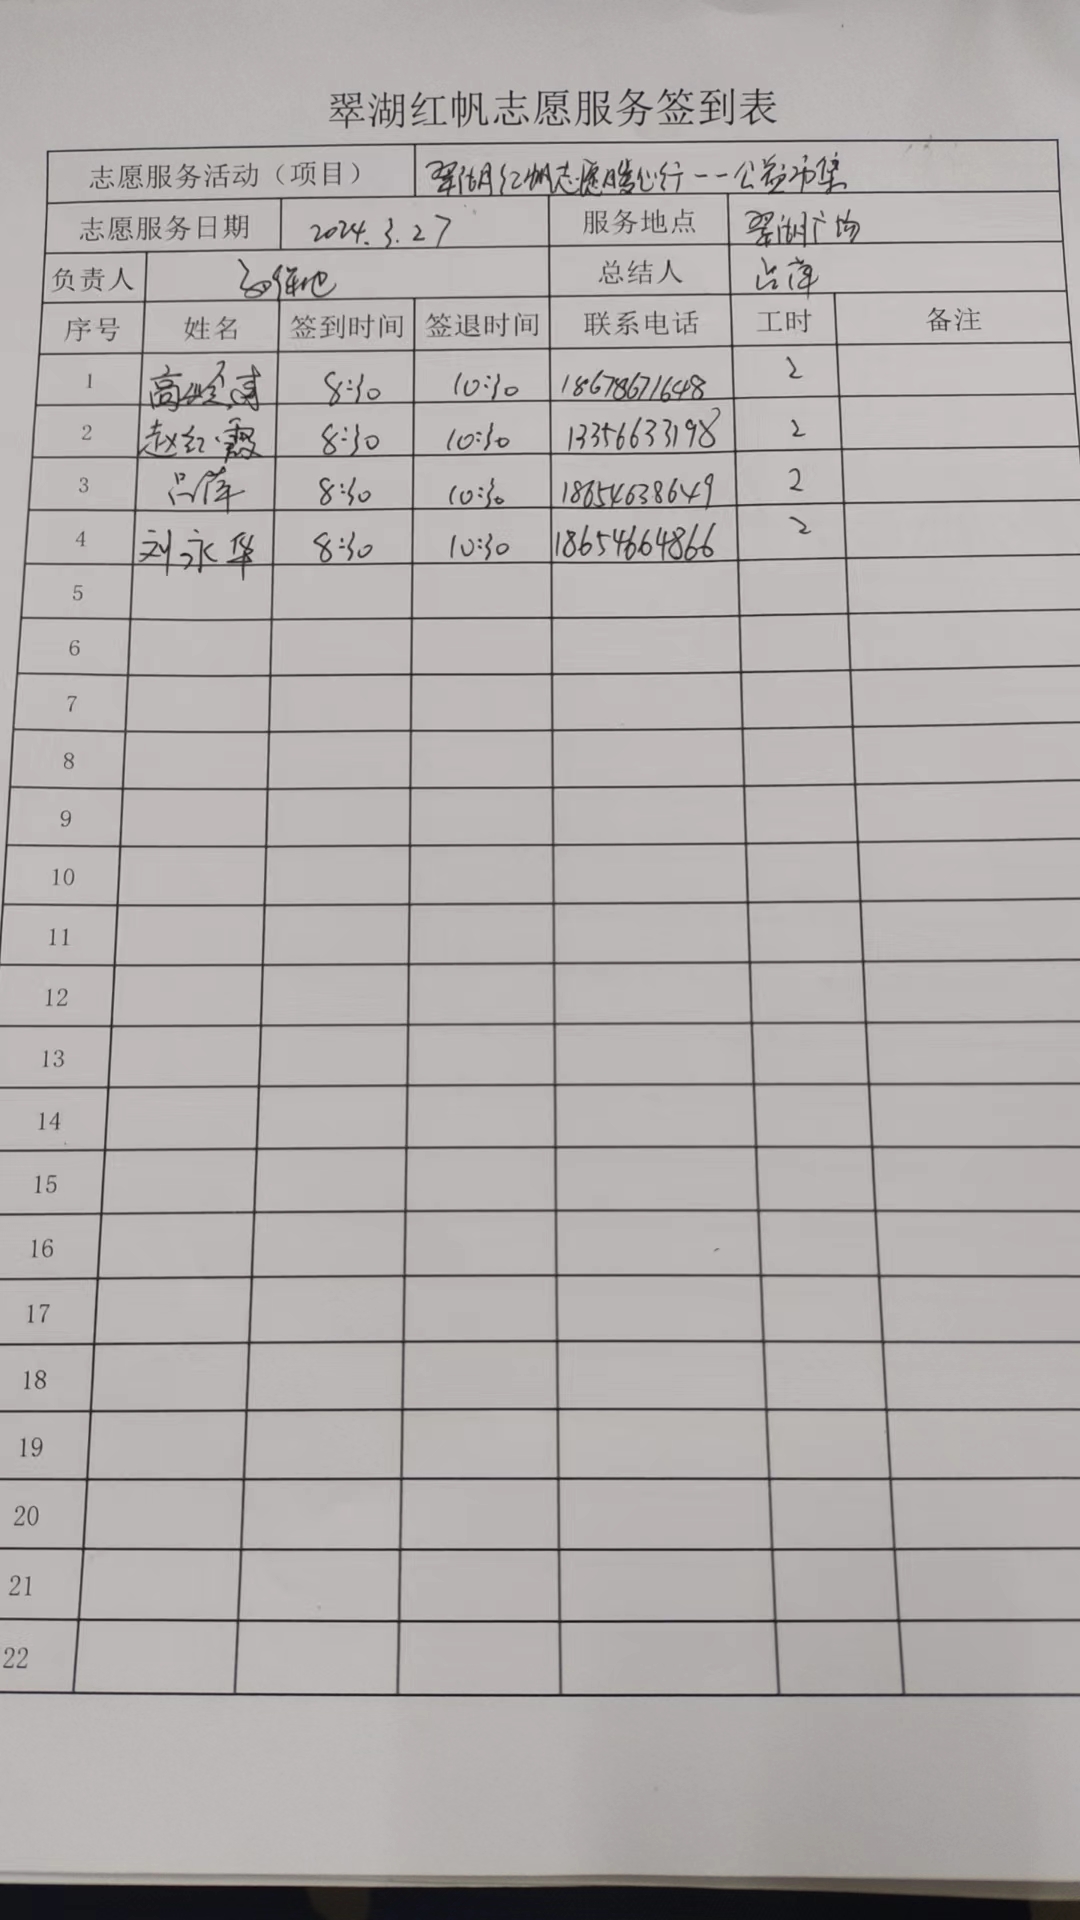 翠湖红帆志愿服务签到表
志愿服务活动（项目） 翠湖红帆志愿暖心行--公益市集
志愿服务日期 2024.3.27 服务地点 翠湖广场
负责人 总结人 吕萍
序号 姓名 签到时间 签退时间 联系电话 工时 备注
1 高 8:30 10:30 18678671648 2
2 赵红霞 8:30 10:30 13356633198 2
3 吕萍 8:30 10:30 18654638649 2
4 刘永华 8:30 10:30 18654664866 2
5
6
7
8
9
10
11
12
13
14
15
16
17
18
19
20
21
22